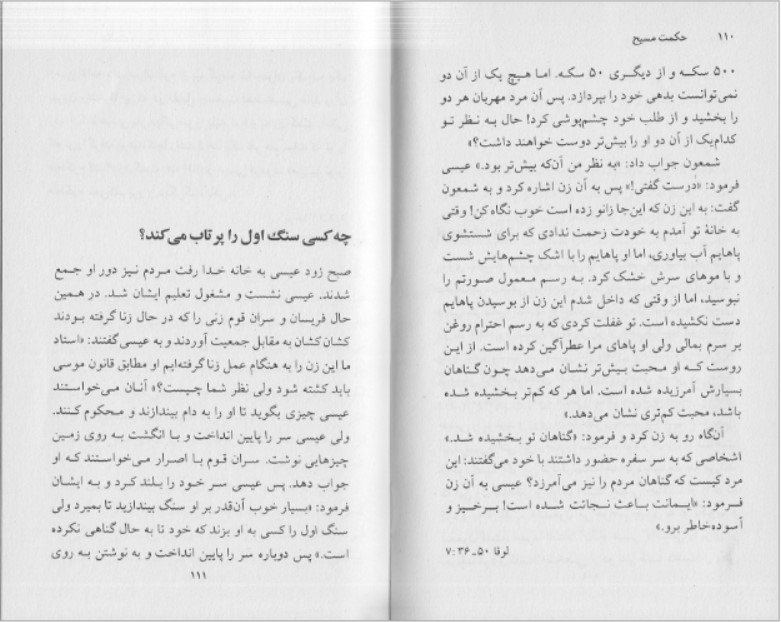 ۱۱۰ حکمت مسیح
۵۰۰ سکـه و از دیگـری ۵۰ سکـه. امـا هیـچ یک از آن دو
نمی‌توانست بدهی خود را بپردازد. پس آن مرد مهربان هر دو
را بخشید و از طلب خود چشم‌پوشی کرد! حال بـه نظـر تو
کدام‌یک از آن دو او را بیش‌تر دوست خواهند داشت؟»
شمعون جواب داد: «به نظر من آن‌که بیش‌تر بود.» عیسی
فرمود: «دُرست گفتی!» پس به آن زن اشاره کرد و به شمعون
گفت: به این زن که این‌جا زانو زده است خوب نگاه کن! وقتی
به خانهٔ تو آمدم به خودت زحمت ندادی که برای شستشوی
پاهایم آب بیاوری، اما او پاهایم را با اشک چشم‌هایش شست
و با موهای سرش خشک کرد. بـه رسـم معمول صورتم را
نبوسید، اما از وقتی که داخل شدم این زن از بوسیدن پاهایم
دست نکشیده است. تو غفلت کردی که به رسم احترام روغن
بر سرم بمالی ولی او پاهای مرا عطرآگین کرده است. از ایـن
روست کـه او محبت بیش‌تر نشـان مـی‌دهد چـون گناهان
بسیارش آمرزیده شده است. اما هر که کم‌تر بخشیده شده
باشد، محبت کم‌تری نشان می‌دهد.»
آن‌گاه رو به زن کرد و فرمود: «گناهان تو بخشیده شـد.»
اشخاصی که به سر سفره حضور داشتند با خود می‌گفتند: این
مرد کیست که گناهان مردم را نیز می‌آمرزد؟ عیسی به آن زن
فرمود: «ایمـانت بـاعث نجـاتت شـده است! بـرخیـز و
آسوده‌خاطر برو.»
لوقا ۵۰ـ۳۶ :۷
چه کسی سنگ اول را پرتاب می‌کند؟
صبح زود عیسی به خانه خـدا رفت مردم نیـز دور او جمع
شدند. عیسی نشست و مشغول تعلیم ایشان شـد. در همین
حال فریسان و سران قوم زنی را که در حال زنا گرفته بودند
کشان‌کشان به مقابل جمعیت آوردند و به عیسی گفتند: «استاد
ما این زن را به هنگام عمل زنا گرفته‌ایم او مطابق قانون موسی
باید کشته شود ولی نظر شما چیست؟» آنـان می‌خواسـتند
عیسی چیزی بگوید تا او را به دام بیندازند و محکوم کـنند.
ولی عیسی سر را پایین انداخت و بـا انگشت بـه روی زمـین
چیزهایی نوشت. سـران قـوم بـا اصـرار مـی‌خواسـتند که او
جواب دهد. پس عیسی سر خود را بـلند کـرد و بـه ایشـان
فرمود: «بسیار خوب آن‌قدر بر او سنگ بیندازید تا بمیرد ولی
سنگ اول را کسی به او بزند که خود تا به حال گناهی نکرده
است.» پس دوباره سر را پایین انداخت و به نوشتن بـه روی
۱۱۱